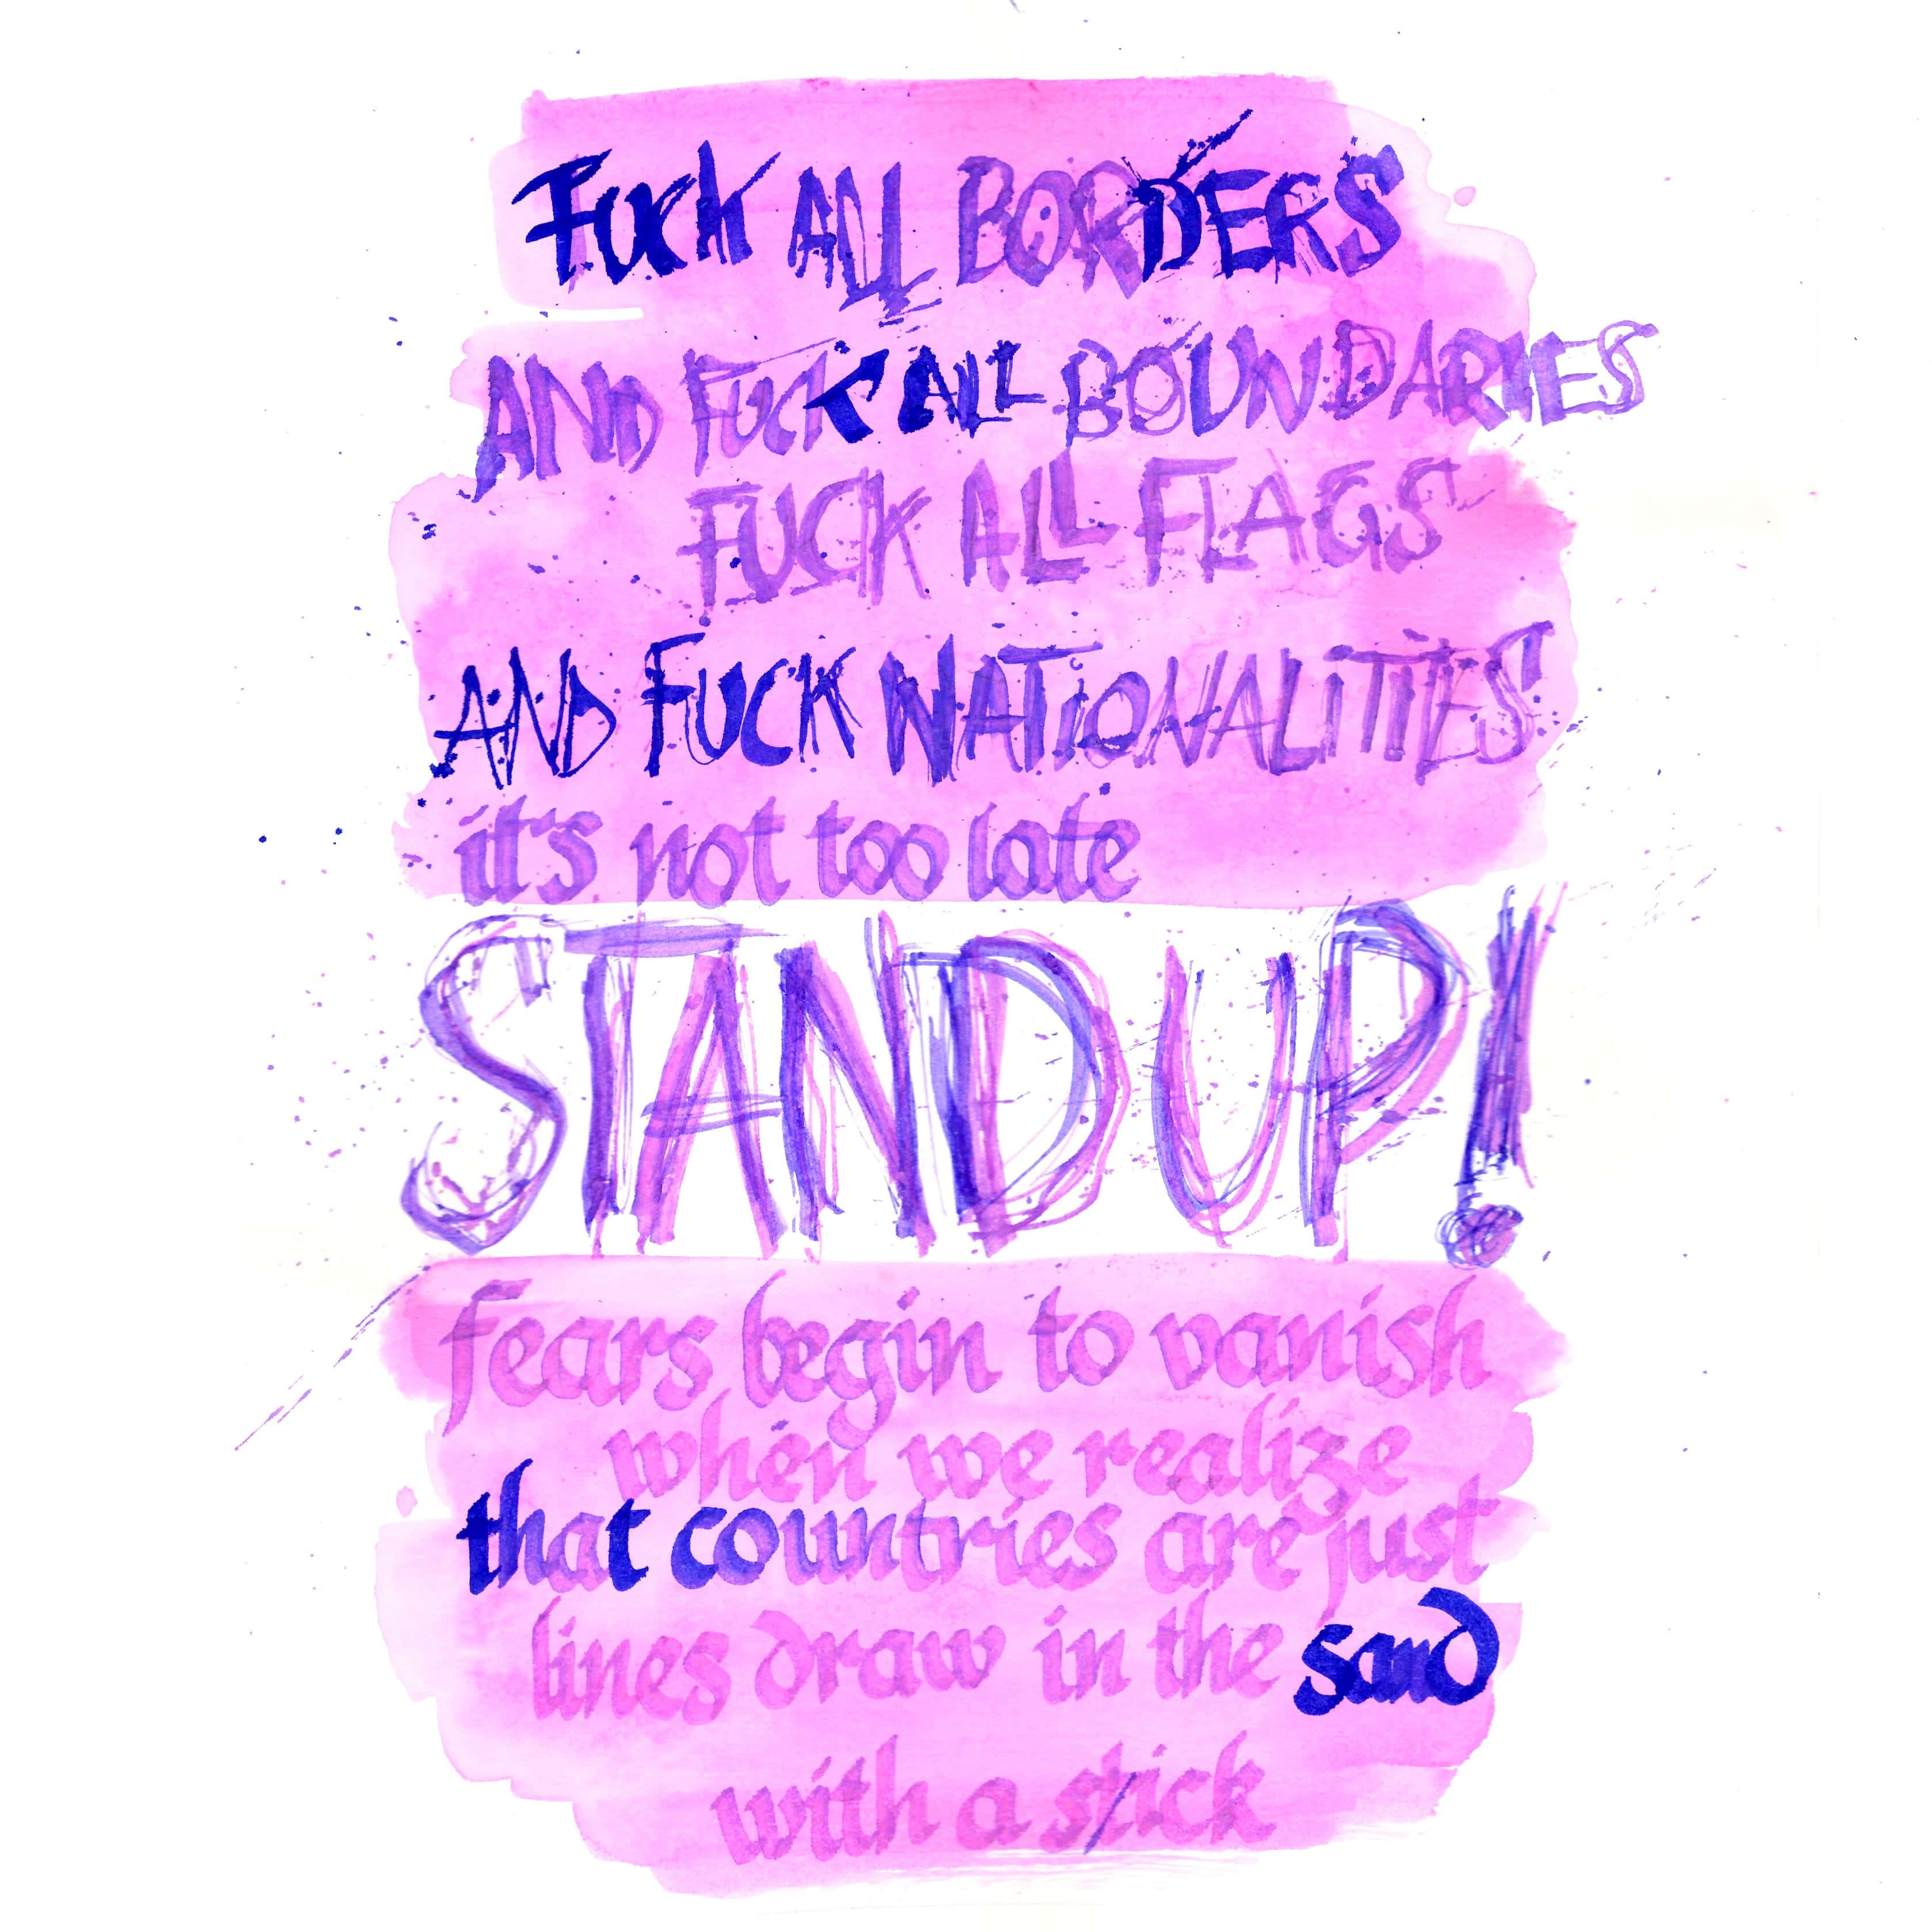 FUCK ALL BORDERS
AND FUCK ALL BOUNDARIES
FUCK ALL FLAGS
AND FUCK NATiONALiTIES
it's not too late
STAND UP!
fears begin to vanish
when we realize
that countries are just
lines draw in the sand
with a stick